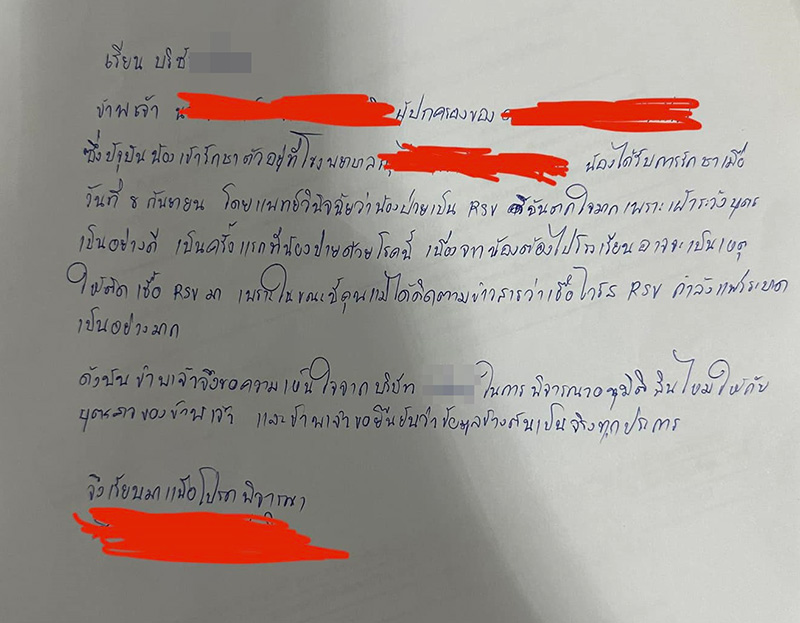 เรียน บริษั
ข้าพเจ้า ผู้ปกครองของ
ซึ่งปัจุบันน้องเข้ารักษาตัวอยู่ที่โรงพยาบาล น้องได้รับการรักษาเมื่อ
วันที่ 8 กันยายน โดยแพทย์วินิจฉัยว่าน้องป่วยเป็น RSV ดิฉันตกใจมาก เพราะเฝ้าระวังบุตร
เป็นอย่างดี เป็นครั้งแรกที่น้องป่วยด้วยโรคนี้ เนื่องจากน้องต้องไปโรงเรียน อาจจะเป็นเหตุ
ให้ติดเชื้อ RSV มา เพราะในขณะนี้คุณแม่ได้ติดตามข่าวสารว่าเชื้อไวรัส RSV กำลังแพร่ระบาด
เป็นอย่างมาก
ดังนั้นข้าพเจ้าจึงขอความเห็นใจจากบริษัท ในการพิจารณาอนุมัติสินไหมให้กับ
บุตรสาวของข้าพเจ้า และข้าพเจ้าขอยืนยันว่าข้อมูลข้างต้นเป็นจริงทุกประการ
จึงเรียนมาเพื่อโปรดพิจารณา